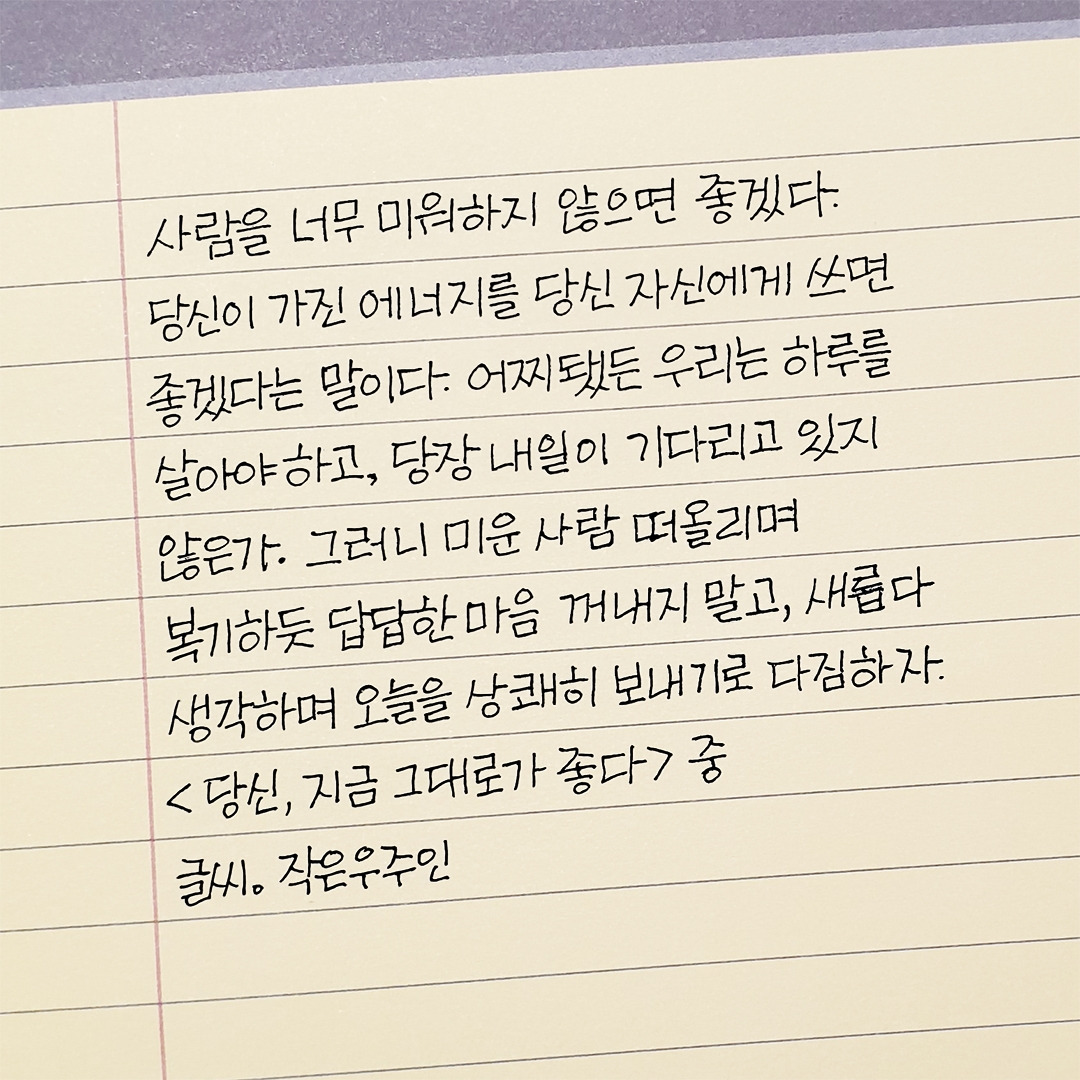 사람을 너무 미워하지 않으면 좋겠다.
당신이 가진 에너지를 당신 자신에게 쓰면
좋겠다는 말이다. 어찌됐든 우리는 하루를
살아야 하고, 당장 내일이 기다리고 있지
않은가. 그러니 미운 사람 떠올리며
복기하듯 답답한 마음 꺼내지 말고, 새롭다
생각하며 오늘을 상쾌히 보내기로 다짐하자.
<당신, 지금 그대로가 좋다> 중
글씨。 작은우주인